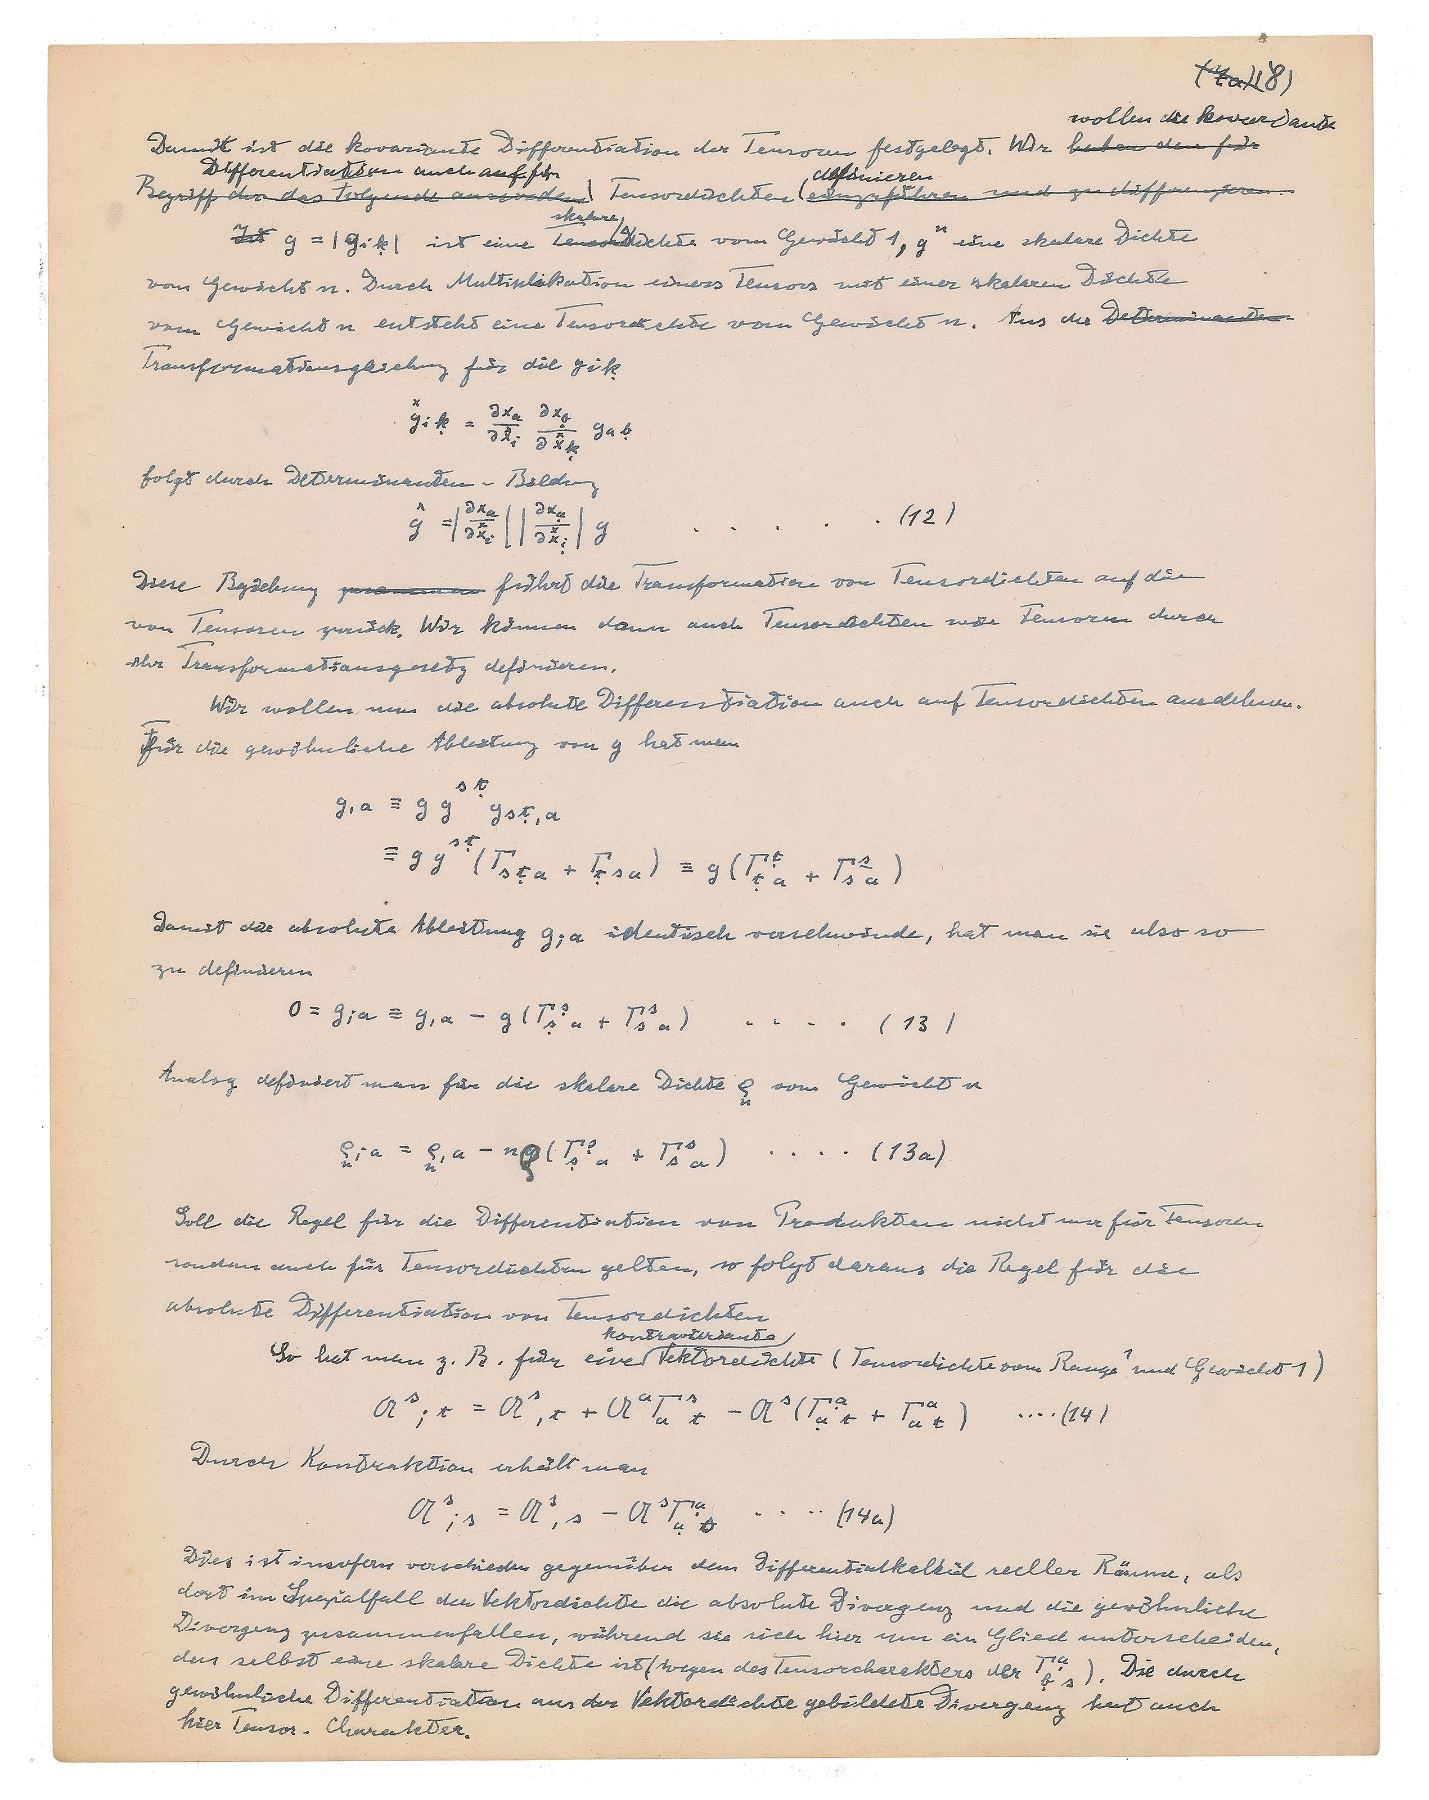 (8)
wollen die kovariante
Damit ist die kovariante Differentiation der Tensoren festgelegt. Wir haben den für
Differentiation auch auf für definieren
Begriff der das Folgende Tensordichten einzuführen und zu differenzieren.
skalare
Ist g = |g_{iḳ}| ist eine Tensor Dichte vom Gewicht 1, g^n eine skalare Dichte
vom Gewicht n. Durch Multiplikation eines Tensors mit einer skalaren Dichte
vom Gewicht n entsteht eine Tensordichte vom Gewicht n. Aus der Determinanten
Transformationsgleichung für die g_{iḳ}
g^x_{iḳ} = ∂x_a/∂x^x_i ∂x_ḅ/∂x^x_ḳ g_{aḅ}
folgt durch Determinanten-Bildung
g^x = |∂x_a/∂x^x_i| |∂x_ạ/∂x^x_ị| g . . . . . (12)
Diese Beziehung zusammen führt die Transformation von Tensordichten auf die
von Tensoren zurück. Wir können dann auch Tensordichten wie Tensoren durch
ihr Transformationsgesetz definieren.
Wir wollen nun die absolute Differentiation auch auf Tensordichten ausdehnen.
Für die gewöhnliche Ableitung von g hat man
g_{,a} ≡ g g^{sṭ} g_{sṭ,a}
≡ g g^{sṭ} (Γ_{sṭa} + Γ_{ṭsa}) ≡ g (Γ_ṭ^ṭ_a + Γ_s^s_a)
Damit die absolute Ableitung g_{;a} identisch verschwinde, hat man sie also so
zu definieren
0 = g_{;a} ≡ g_{,a} − g (Γ_ṣ^ṣ_a + Γ_s^s_a) . . . . (13)
Analog definiert man für die skalare Dichte ρ_n vom Gewicht n
ρ_n{;a} = ρ_n{,a} − nρ (Γ_ṣ^ṣ_a + Γ_s^s_a) . . . . (13a)
Soll die Regel für die Differentiation von Produkten nicht nur für Tensoren
sondern auch für Tensordichten gelten, so folgt daraus die Regel für die
absolute Differentiation von Tensordichten
kontravariante
So hat man z. B. für eine Vektordichte (Tensordichte vom Range 1 und Gewicht 1)
𝔄^s_{;t} = 𝔄^s_{,t} + 𝔄^a Γ_a^s_t − 𝔄^s (Γ_ạ^ạ_t + Γ_a^a_t) ....(14)
Durch Kontraktion erhält man
𝔄^s_{;s} = 𝔄^s_{,s} − 𝔄^s Γ_ạ^ạ_s . . . . (14a)
Dies ist insofern verschieden gegenüber dem Differentialkalkül reeller Räume, als
dort im Spezialfall der Vektordichte die absolute Divergenz und die gewöhnliche
Divergenz zusammenfallen, während sie sich hier um ein Glied unterscheiden,
das selbst eine skalare Dichte ist (wegen des Tensorcharakters der Γ_ḅ^ạ_s). Die durch
gewöhnliche Differentiation aus der Vektordichte gebildete Divergenz hat auch
hier Tensor-Charakter.